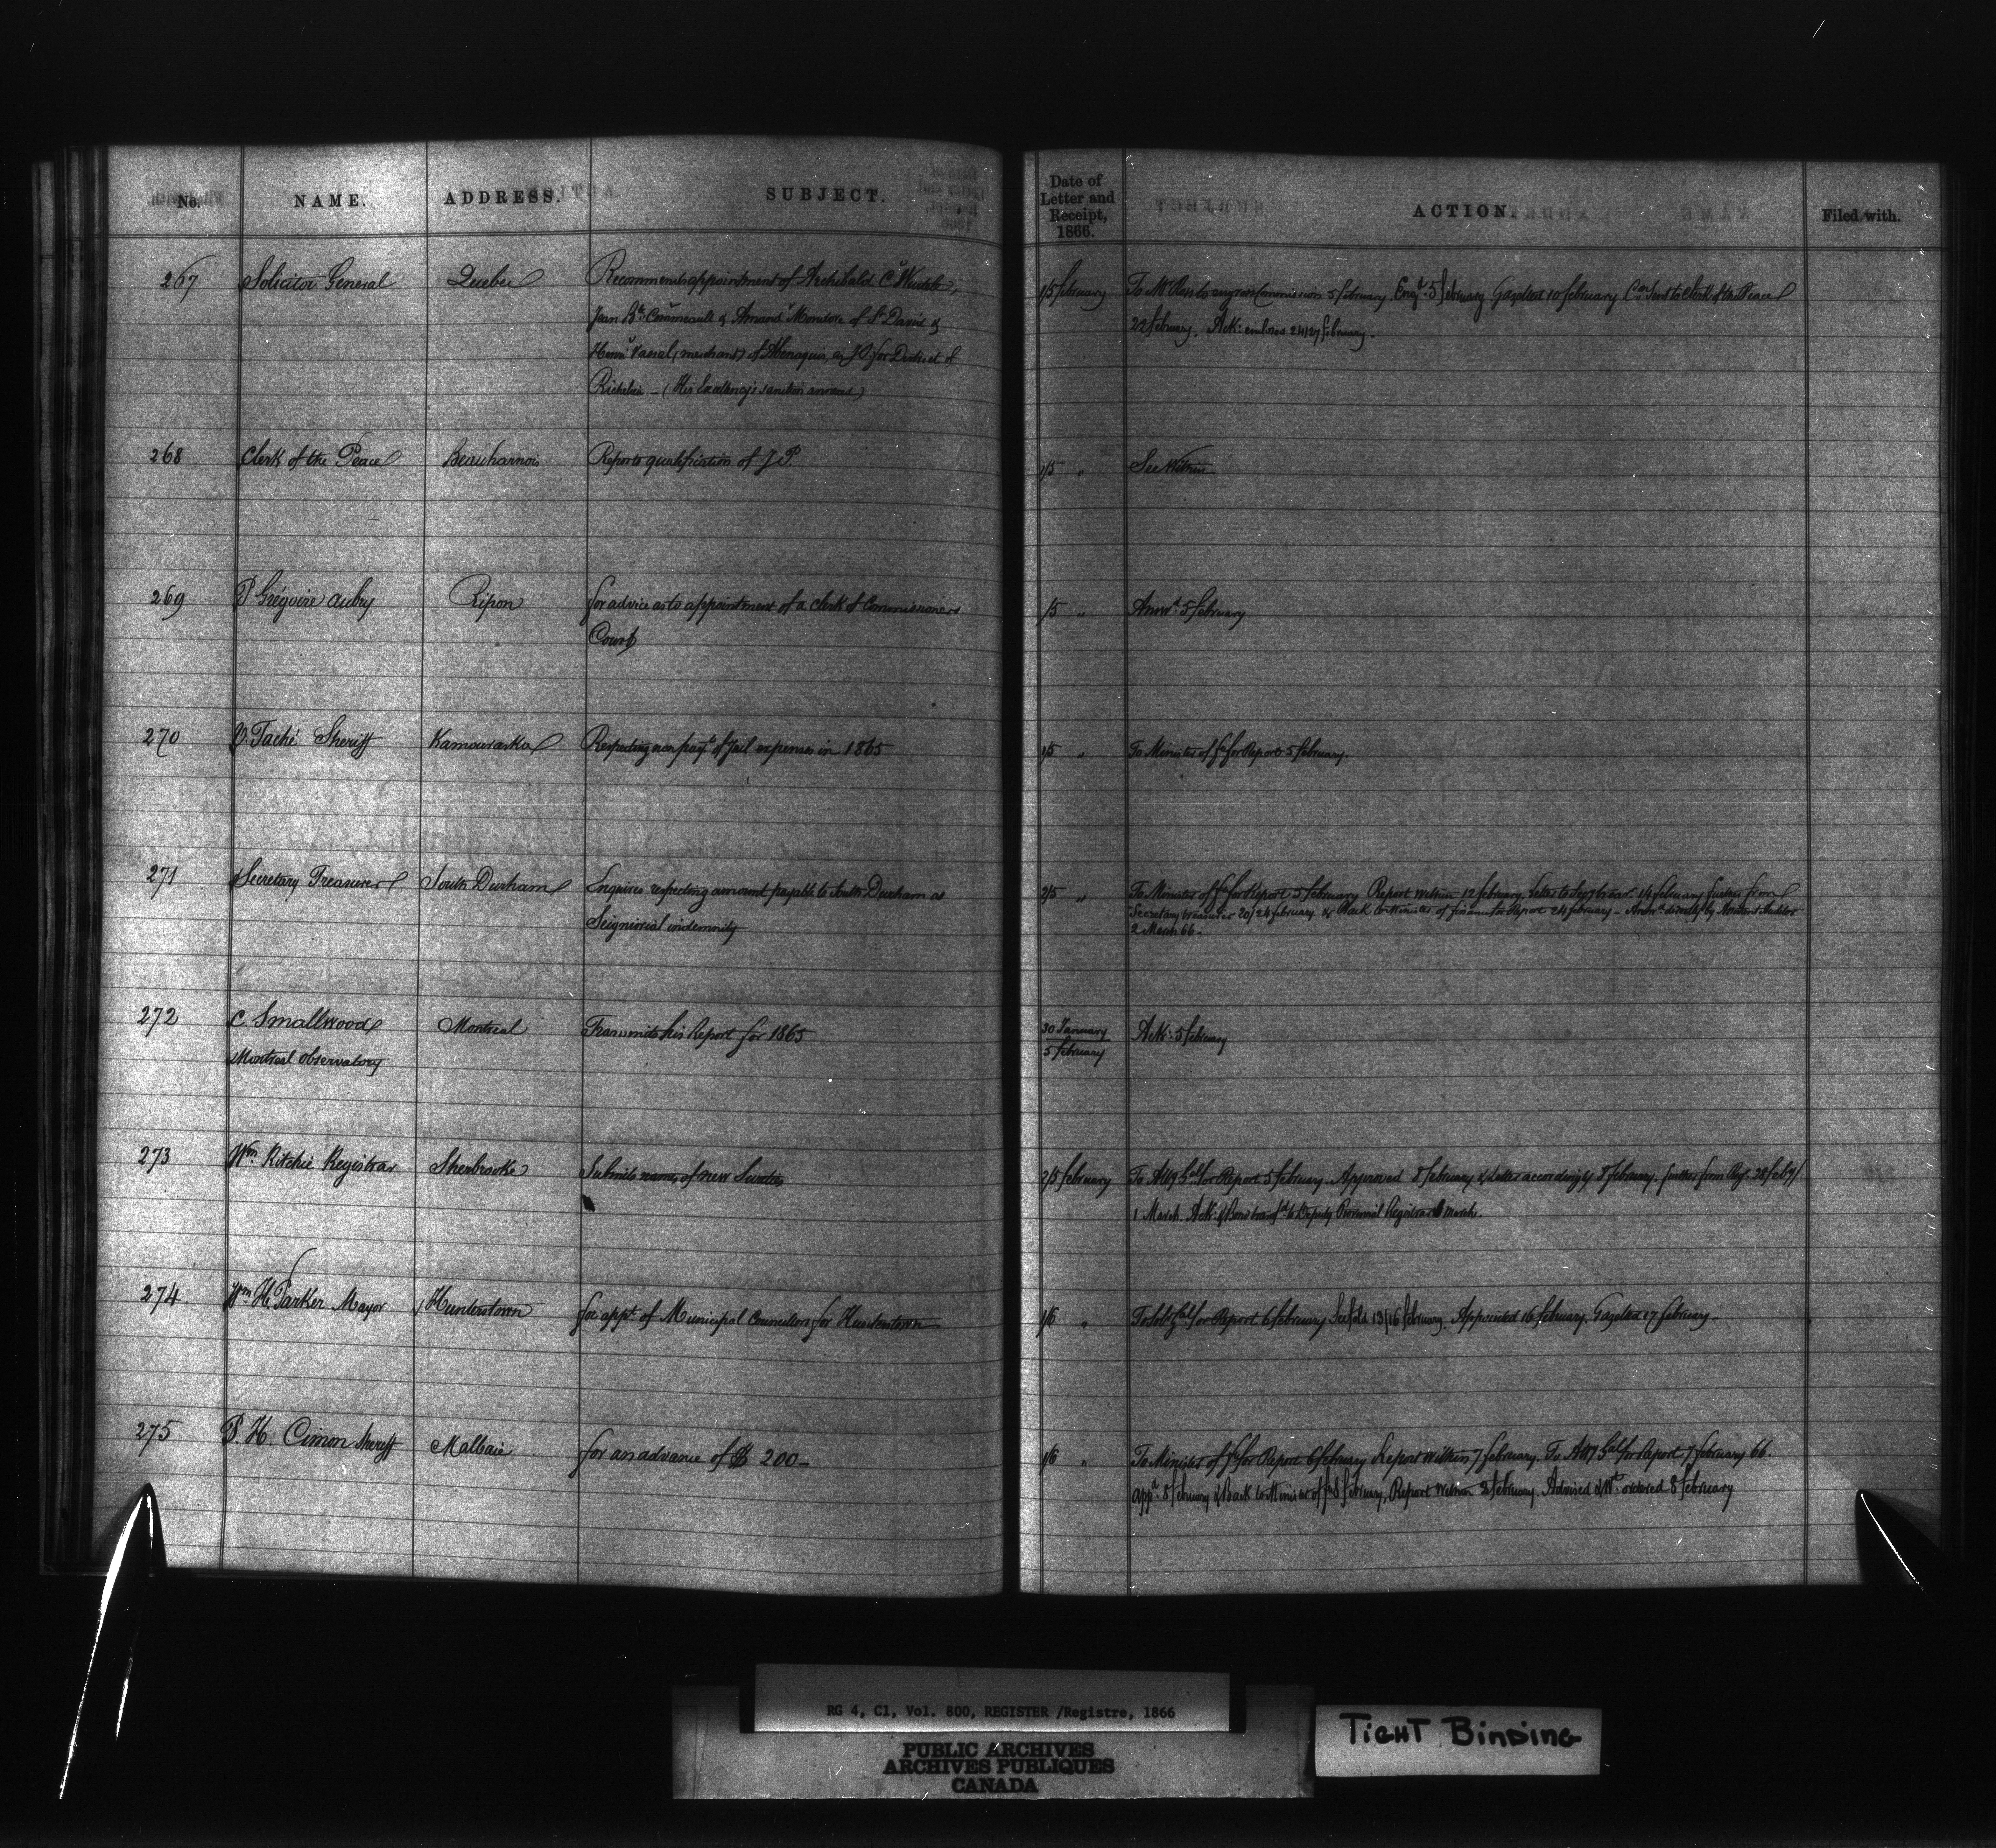 No. NAME. ADDRESS. SUBJECT. Date of Letter and Receipt, 1866. ACTION. Filed with.
267 Solicitor General Quebec Recommends appointment of Archibald Cr
Jean Bte & Amand Mondore of St David &
Vassal, (merchant) of Abenaquis, as J.P. for District of
Richelieu - (His Excellency's sanction annexed)
1/5 February To Mr to engross Commission 5 February Engd 5 February Gazetted 10 February Con Sent to Clerk of the Peace
22 February. Ack: enclosed 24/27 February.
268 Clerk of the Peace Beauharnois Reports qualification of J.P. 1/5 " See Within
269 P Grégoire Aubry Ripon for advice as to appointment of a clerk of Commissioners
Court
1/5 " Answd 5 February
270 V. Taché Sheriff Kamouraska Respecting non payt of Jail expenses in 1865 1/5 " To Minister of Fe for Report 5 February.
271 Secretary Treasurer South Durham Enquires respecting amount payable to South Durham as
Seigniorial indemnity
2/5 " To Minister of Fe for Report 5 February Report within 12 February Letter to Secy treasr. 14 February further from
Secretary treasurer 20/24 February & Back to Minister of finance for Report 24 February - Answd directly by Auditor
2 March 66.
272 C. Smallwood Montreal Transmits his Report for 1865 30 January Ack: 5 February
Montreal observatory 5 February
273 Wm Ritchie Registrar Sherbrooke Submits names of new Sureties 2/5 February To Atty Gal for Report 5 February. Approved 8 February & Letter accordingly 8 February. further from Reg. 28 Feby/
1 March. Ack: & Bond transfd to Deputy Provincial Registrar March.
274 Wm H. Parker Mayor Hunterstown for appt of Municipal Councillors for Hunterstown 1/6 " To Sol Gal for Report 6 February 13/16 February. Appointed 16 February. Gazetted 17 February.
275 P. H. Cimon Sheriff Malbaie for an advance of $ 200- 1/6 " To Minister of Fe for Report 6 February Report within 7 February. To Atty Gal for Report 7 February 66.
appd 8 February & Back to Minister of Fe 8 February, Report within 8 February. Advised & Wt ordered 8 February
RG 4, C1, Vol. 800, REGISTER /Registre, 1866
PUBLIC ARCHIVES
ARCHIVES PUBLIQUES
CANADA
TIGHT BINDING